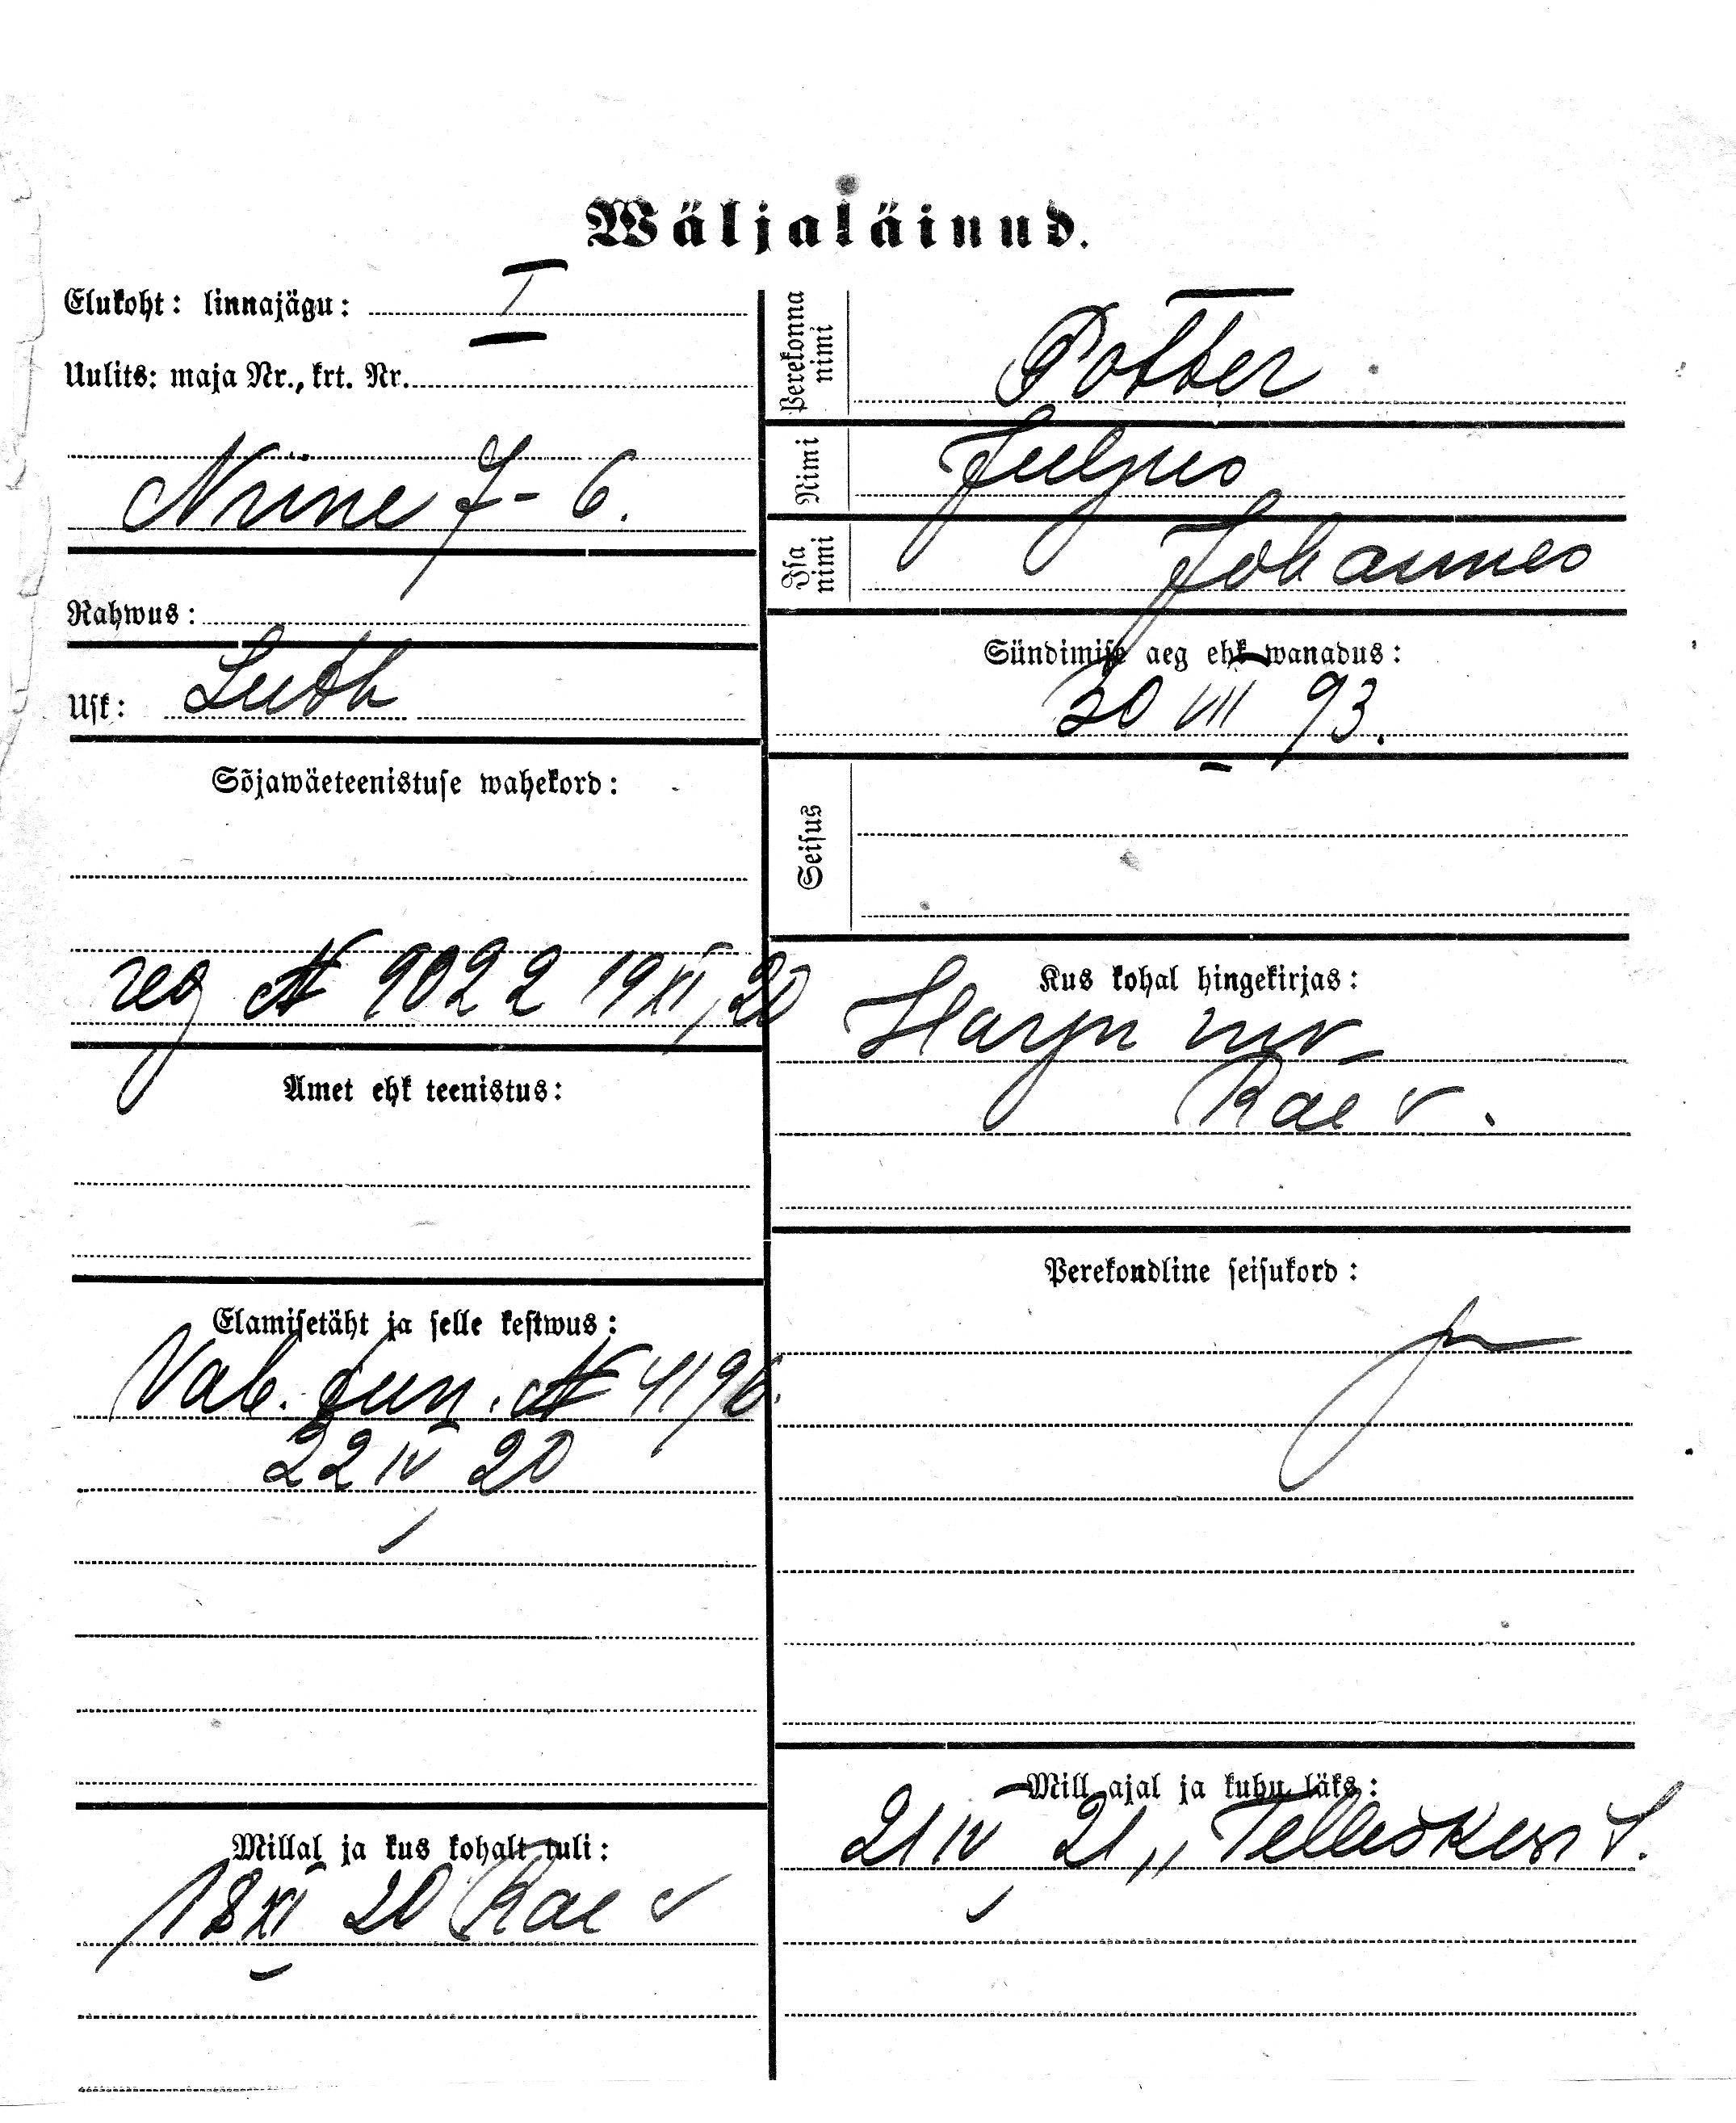 Wäljaläinud.
Elukoht: linnajägu: I
Uulits: maja Nr., krt. Nr.
Niine 7-6.
Rahwus:
Usk: Luth
Sõjawäeteenistuse wahekord:
reg № 9022 19 XI 20
Amet ehk teenistus:
Elamisetäht ja selle kestwus:
Vab. tun. № 4196.
22 IV 20
Millal ja kus kohalt tuli:
18 XI 20 Rae v
Perekonna nimi
Potter
Nimi
Julius
Isa nimi
Johannes
Sündimise aeg ehk wanadus:
30 VII 93.
Seisus
Kus kohal hingekirjas:
Harju mv
Rae v.
Perekondline seisukord:
Mill ajal ja kuhu läks:
21 IV 21 „